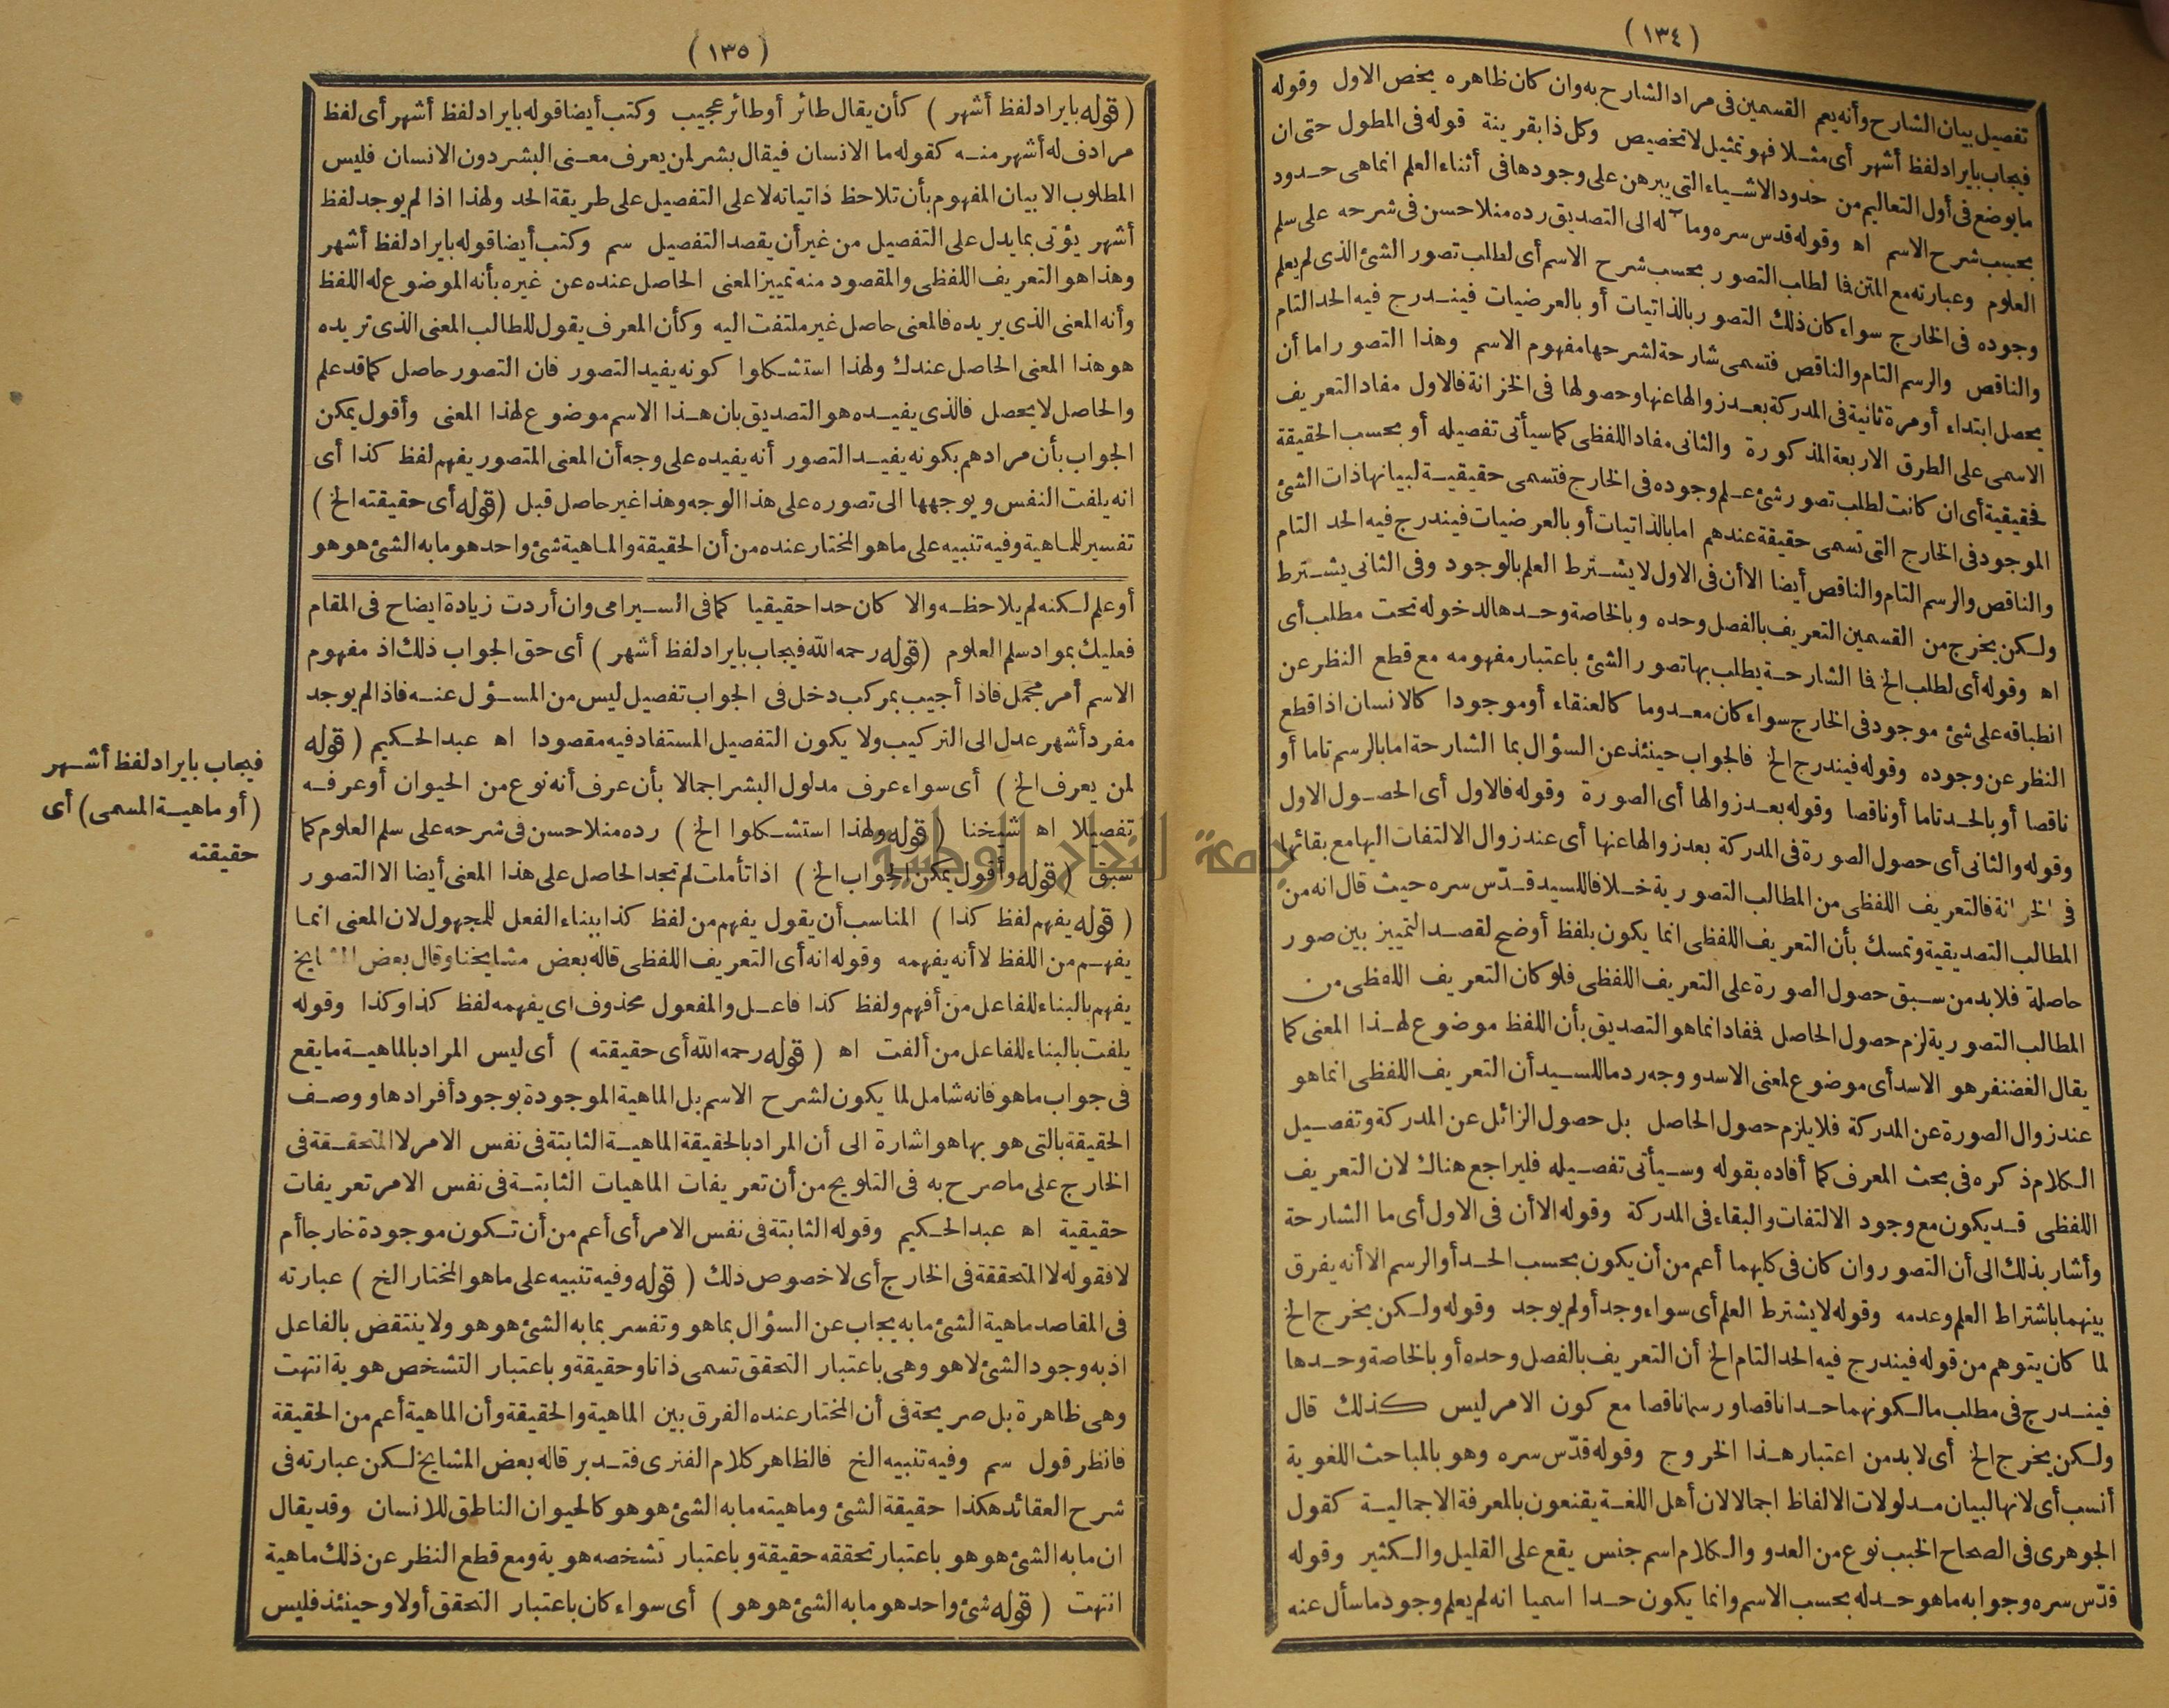 (١٣٤)
تفصيل بيان الشارح وأنه يعم القسمين فى مراد الشارح به وان كان ظاهره يخص الاول وقوله
فيجاب بايراد لفظ أشهر أى مثلا فهو تمثيل لا تخصيص وكل ذا بقرينة قوله فى المطول حتى ان
ما يوضع فى أول التعاليم من حدود الاشياء التى يبرهن على وجودها فى أثناء العلم انما هى حدود
بحسب شرح الاسم اه وقوله قدس سره وما آله الى التصديق رده منلا حسن فى شرحه على سلم
العلوم وعبارته مع المتن فما لطلب التصور بحسب شرح الاسم أى لطلب تصور الشئ الذى لم يعلم
وجوده فى الخارج سواء كان ذلك التصور بالذاتيات أو بالعرضيات فيندرج فيه الحد التام
والناقص والرسم التام والناقص فتسمى شارحة لشرحها مفهوم الاسم وهذا التصور اما أن
يحصل ابتداء أو مرة ثانية فى المدركة بعد زوالها عنها وحصولها فى الخزانة فالاول مفاد التعريف
الاسمى على الطرق الاربعة المذكورة والثانى مفاد اللفظى كما سيأتى تفصيله أو بحسب الحقيقة
فحقيقية أى ان كانت لطلب تصور شئ علم وجوده فى الخارج فتسمى حقيقية لبيانها ذات الشئ
الموجود فى الخارج التى تسمى حقيقة عندهم اما بالذاتيات أو بالعرضيات فيندرج فيه الحد التام
والناقص والرسم التام والناقص أيضا الا أن فى الاول لا يشترط العلم بالوجود وفى الثانى يشترط
ولكن يخرج من القسمين التعريف بالفصل وحده وبالخاصة وحدها لدخوله تحت مطلب أى
اه وقوله أى لطلب الخ فما الشارحة يطلب بها تصور الشئ باعتبار مفهومه مع قطع النظر عن
انطباقه على شئ موجود فى الخارج سواء كان معدوما كالعنقاء أو موجودا كالانسان اذا قطع
النظر عن وجوده وقوله فيندرج الخ فالجواب حينئذ عن السؤال بما الشارحة اما بالرسم تاما أو
ناقصا أو بالحد تاما أو ناقصا وقوله بعد زوالها أى الصورة وقوله فالاول أى الحصول الاول
وقوله والثانى أى حصول الصورة فى المدركة بعد زوالها عنها أى عند زوال الالتفات اليها مع بقائها
فى الخزانة فالتعريف اللفظى من المطالب التصورية خلافا للسيد قدّس سره حيث قال انه من
المطالب التصديقية وتمسك بأن التعريف اللفظى انما يكون بلفظ أوضح لقصد التمييز بين صور
حاصلة فلا بد من سبق حصول الصورة على التعريف اللفظى فلو كان التعريف اللفظى من
المطالب التصورية لزم حصول الحاصل ففاد انما هو التصديق بأن اللفظ موضوع لهذا المعنى كما
يقال الغضنفر هو الاسد أى موضوع لمعنى الاسد ووجه رد ما للسيد أن التعريف اللفظى انما هو
عند زوال الصورة عن المدركة فلا يلزم حصول الحاصل بل حصول الزائل عن المدركة وتفصيل
الكلام ذكره فى بحث المعرف كما أفاده بقوله وسيأتى تفصيله فليراجع هناك لان التعريف
اللفظى قد يكون مع وجود الالتفات والبقاء فى المدركة وقوله الا أن فى الاول أى ما الشارحة
وأشار بذلك الى أن التصور وان كان فى كليهما أعم من أن يكون بحسب الحد أو الرسم الا أنه يفرق
بينهما باشتراط العلم وعدمه وقوله لا يشترط العلم أى سواء وجد أو لم يوجد وقوله ولكن يخرج الخ
لما كان يتوهم من قوله فيندرج فيه الحد التام الخ أن التعريف بالفصل وحده أو بالخاصة وحدها
فيندرج فى مطلب ما لكونهما حدا ناقصا ورسما ناقصا مع كون الامر ليس كذلك قال
ولكن يخرج الخ أى لا بد من اعتبار هذا الخروج وقوله قدّس سره وهو بالمباحث اللغوية
أنسب أى لانها لبيان مدلولات الالفاظ اجمالا لان أهل اللغة يقنعون بالمعرفة الاجمالية كقول
الجوهرى فى الصحاح الخبب نوع من العدو والكلام اسم جنس يقع على القليل والكثير وقوله
قدّس سره وجوابه ما هو حد له بحسب الاسم وانما يكون حدا اسميا انه لم يعلم وجود ما سأل عنه
(١٣٥)
(قوله بايراد لفظ أشهر) كأن يقال طائر أو طائر عجيب وكتب أيضا قوله بايراد لفظ أشهر أى لفظ
مرادف له أشهر منه كقوله ما الانسان فيقال بشر لمن يعرف معنى البشر دون الانسان فليس
المطلوب الا بيان المفهوم بأن تلاحظ ذاتياته لا على التفصيل على طريقة الحد ولهذا اذا لم يوجد لفظ
أشهر يؤتى بما يدل على التفصيل من غير أن يقصد التفصيل سم وكتب أيضا قوله بايراد لفظ أشهر
وهذا هو التعريف اللفظى والمقصود منه تمييز المعنى الحاصل عنده عن غيره بأنه الموضوع له اللفظ
وأنه المعنى الذى يريده فالمعنى حاصل غير ملتفت اليه وكأن المعرف يقول للطالب المعنى الذى تريده
هو هذا المعنى الحاصل عندك ولهذا استشكلوا كونه يفيد التصور فان التصور حاصل كما قد علم
والحاصل لا يحصل فالذى يفيده هو التصديق بان هذا الاسم موضوع لهذا المعنى وأقول يمكن
الجواب بأن مرادهم بكونه يفيد التصور أنه يفيده على وجه أن المعنى المتصور يفهم لفظ كذا أى
انه يلفت النفس ويوجهها الى تصوره على هذا الوجه وهذا غير حاصل قبل (قوله أى حقيقته الخ)
تفسير للماهية وفيه تنبيه على ما هو المختار عنده من أن الحقيقة والماهية شئ واحد هو ما به الشئ هو هو
أو علم لكنه لم يلاحظه والا كان حدا حقيقيا كما فى السيرامى وان أردت زيادة ايضاح فى المقام
فعليك بمواد سلم العلوم (قوله رحمه الله فيجاب بايراد لفظ أشهر) أى حق الجواب ذلك اذ مفهوم
الاسم أمر مجمل فاذا أجيب بمركب دخل فى الجواب تفصيل ليس من المسؤل عنه فاذا لم يوجد
مفرد أشهر عدل الى التركيب ولا يكون التفصيل المستفاد فيه مقصودا اه عبد الحكيم (قوله
لمن يعرف الخ) أى سواء عرف مدلول البشر اجمالا بأن عرف أنه نوع من الحيوان أو عرفه
تفصيلا اه شيخنا (قوله ولهذا استشكلوا الخ) رده منلا حسن فى شرحه على سلم العلوم كما
سبق (قوله وأقول يمكن الجواب الخ) اذا تأملت لم تجد الحاصل على هذا المعنى أيضا الا التصور
(قوله يفهم لفظ كذا) المناسب أن يقول يفهم من لفظ كذا ببناء الفعل للمجهول لان المعنى انما
يفهم من اللفظ لا أنه يفهمه وقوله انه أى التعريف اللفظى قاله بعض مشايخنا وقال بعض المشايخ
يفهم بالبناء للفاعل من أفهم ولفظ كذا فاعل والمفعول محذوف أى يفهمه لفظ كذا وكذا وقوله
يلفت بالبناء للفاعل من ألفت اه (قوله رحمه الله أى حقيقته) أى ليس المراد بالماهية ما يقع
فى جواب ما هو فانه شامل لما يكون لشرح الاسم بل الماهية الموجودة بوجود أفرادها ووصف
الحقيقة بالتى هو بها هو اشارة الى أن المراد بالحقيقة الماهية الثابتة فى نفس الامر لا المتحققة فى
الخارج على ما صرح به فى التلويح من أن تعريفات الماهيات الثابتة فى نفس الامر تعريفات
حقيقية اه عبد الحكيم وقوله الثابتة فى نفس الامر أى أعم من أن تكون موجودة خارجا أم
لا فقوله لا المتحققة فى الخارج أى لا خصوص ذلك (قوله وفيه تنبيه على ما هو المختار الخ) عبارته
فى المقاصد ماهية الشئ ما به يجاب عن السؤال بما هو وتفسر بما به الشئ هو هو ولا ينتقض بالفاعل
اذ به وجود الشئ لا هو وهى باعتبار التحقق تسمى ذاتا وحقيقة وباعتبار التشخص هوية انتهت
وهى ظاهرة بل صريحة فى أن المختار عنده الفرق بين الماهية والحقيقة وأن الماهية أعم من الحقيقة
فانظر قول سم وفيه تنبيه الخ فالظاهر كلام الفنرى فتدبر قاله بعض المشايخ لكن عبارته فى
شرح العقائد هكذا حقيقة الشئ وماهيته ما به الشئ هو هو كالحيوان الناطق للانسان وقد يقال
ان ما به الشئ هو هو باعتبار تحققه حقيقة وباعتبار تشخصه هوية ومع قطع النظر عن ذلك ماهية
انتهت (قوله شئ واحد هو ما به الشئ هو هو) أى سواء كان باعتبار التحقق أولا وحينئذ فليس
فيجاب بايراد لفظ أشهر
(أو ماهية المسمى) أى
حقيقته
جامعة النجاح الوطنية